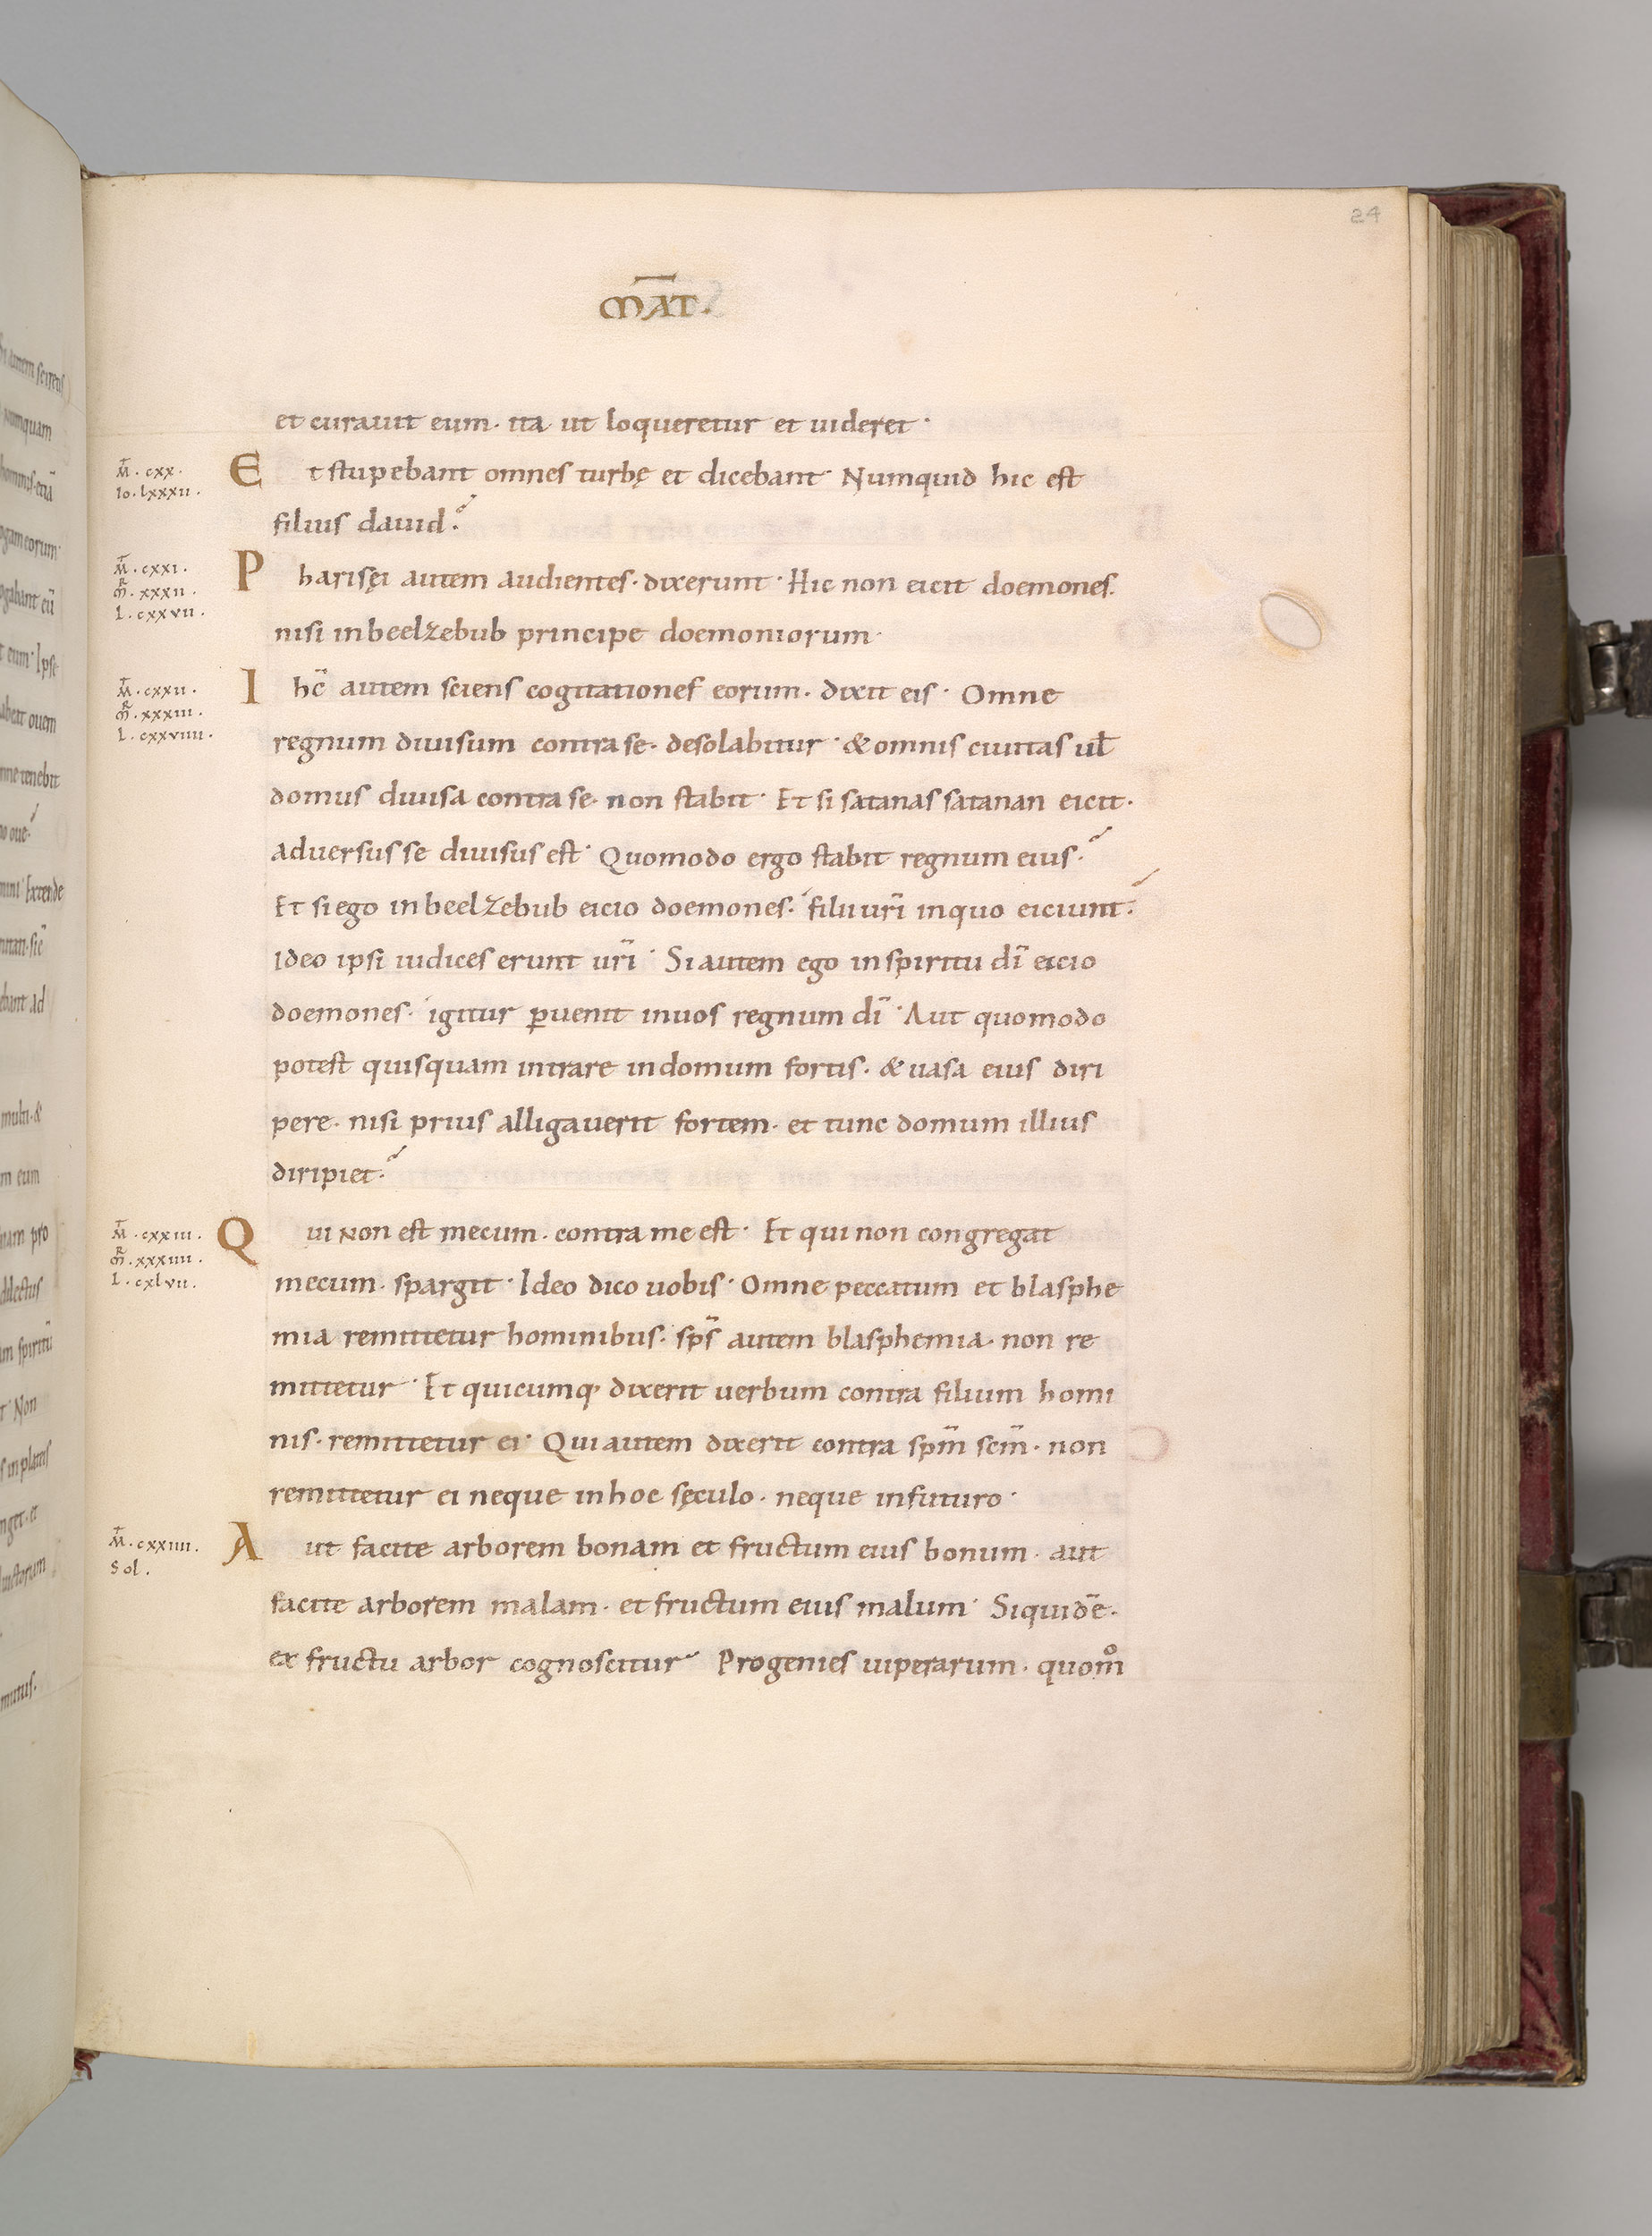 24
M̄AT.
et curauit eum. ita ut loqueretur et uideret.
M̄. cxx.
Io. lxxxii.
Et stupebant omnes turbę et dicebant. Numquid hic est
filius dauid?
M̄. cxxi.
M̊R. xxxii.
L. cxxvii.
Pharisęi autem audientes. dixerunt. Hic non eicit doemones.
nisi in beelzebub principe doemoniorum.
M̄. cxxii.
MR. xxxiii.
L. cxxviiii.
Ihc̄ autem sciens cogitationes eorum. dixit eis. Omne
regnum diuisum contra se. desolabitur. & omnis ciuitas ul̄
domus diuisa contra se. non stabit. Et si satanas satanan eicit.
aduersus se diuisus est. Quomodo ergo stabit regnum eius?
Et si ego in beelzebub eicio doemones. filii ur̄i in quo eiciunt?
Ideo ipsi iudices erunt ur̄i. Si autem ego in spiritu dī eicio
doemones. igitur ꝑuenit in uos regnum dī. Aut quomodo
potest quisquam intrare in domum fortis. & uasa eius diri
pere. nisi prius alligauerit fortem. et tunc domum illius
diripiet?
M̄. cxxiii.
MR. xxxiiii.
L. cxlvii.
Qui non est mecum. contra me est. Et qui non congregat
mecum. spargit. Ideo dico uobis. Omne peccatum et blasphe
mia remittetur hominibus. sp̄s autem blasphemia. non re
mittetur. Et quicumq; dixerit uerbum contra filium homi
nis. remittetur ei. Qui autem dixerit contra sp̄m sc̄m. non
remittetur ei neque in hoc sęculo. neque in futuro.
M̄. cxxiiii.
Sol.
Aut facite arborem bonam et fructum eius bonum. aut
facite arborem malam. et fructum eius malum. Siquidē.
ex fructu arbor cognoscitur. Progenies uiperarum. quom̊